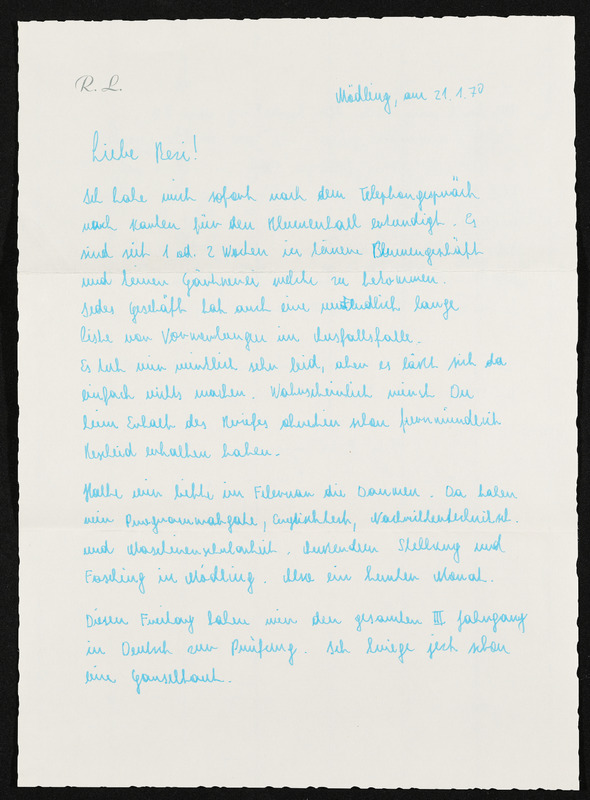 R. L.
Mödling, am 21.1.70
Liebe Resi!
Ich habe mich sofort nach dem Telephongespräch
nach Karten für den Blumenball erkundigt. Es
sind seit 1 od. 2 Wochen in keinem Blumengeschäft
und keinem Gärtnerei welche zu bekommen.
Jedes Geschäft hat auch eine unendlich lange
Liste von Vormerkungen im Ausfallsfalle.
Es tut mir wirklich sehr leid, aber es läßt sich da
einfach nichts machen. Wahrscheinlich wirst Du
beim Erhalt des Briefes ohnehin schon fernmündlich
Bescheid erhalten haben.
Halte mir bitte im Februar die Daumen. Da haben
wir Programmabgabe, Englischtest, Nachrichtentechnik
und Maschinenschularbeit. Ausserdem Stellung und
Fasching in Mödling. Also ein bunter Monat.
Diesen Freitag haben wir den gesamten III Jahrgang
in Deutsch zur Prüfung. Ich kriege jetzt schon
eine Ganselhaut.